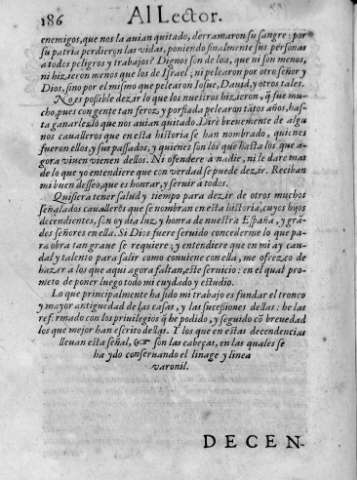 186 Al Lector.
enemigos, que nos la auian quitado, derramaron su sangre: por
su patria perdieron las vidas, poniendo finalmente sus personas
a todos peligros y trabajos? Dignos son de loa, que ni son menos,
ni hizieron menos que los de Israel; ni pelearon por otro señor y
Dios, sino por el mismo que pelearon Josue, Dauid, y otros tales.
No es possible dezir lo que los nuestros hizieron, q̃ fue mu-
cho, pues con gente tan feroz, y porfiada pelearon tãtos años, has-
ta ganarles lo que nos auian quitado. Dirè breuemente de algu
nos caualleros que en esta historia se han nombrado, quienes
fueron ellos, y sus passados, y quienes son los que hasta los que a-
gora viuen vienen dellos. Ni ofendere à nadie, ni le dare mas
de lo que yo entendiere que con verdad se puede dezir. Reciban
mi buen desseo, que es honrar, y seruir a todos.
Quisiera tener salud y tiempo para dezir de otros muchos
señalados caualleros que se nombran en esta historia, cuyos hijos
decendientes, son oy dia luz, y honra de nuestra España, y grã-
des señores en ella. Si Dios fuere seruido concederme lo que pa-
ra obra tan graue se requiere; y entendiere que en mi ay cau-
dal y talento para salir como conuiene con ella, me ofrezco de
hazer a los que aqui agora faltan, este seruicio: en el qual pro-
meto de poner luego todo mi cuydado y estudio.
Lo que principalmente ha sido mi trabajo es fundar el tronco
y mayor antiguedad de las casas, y las sucessiones dellas: he las
reformado con los priuilegios q̃ he podido, y seguido cõ breuedad
los que mejor han escrito dellas. Y los que en estas decendencias
lleuan esta señal, ☞ son las cabeças, en las quales se
ha ydo conseruando el linage y linea
varonil.
DECEN-